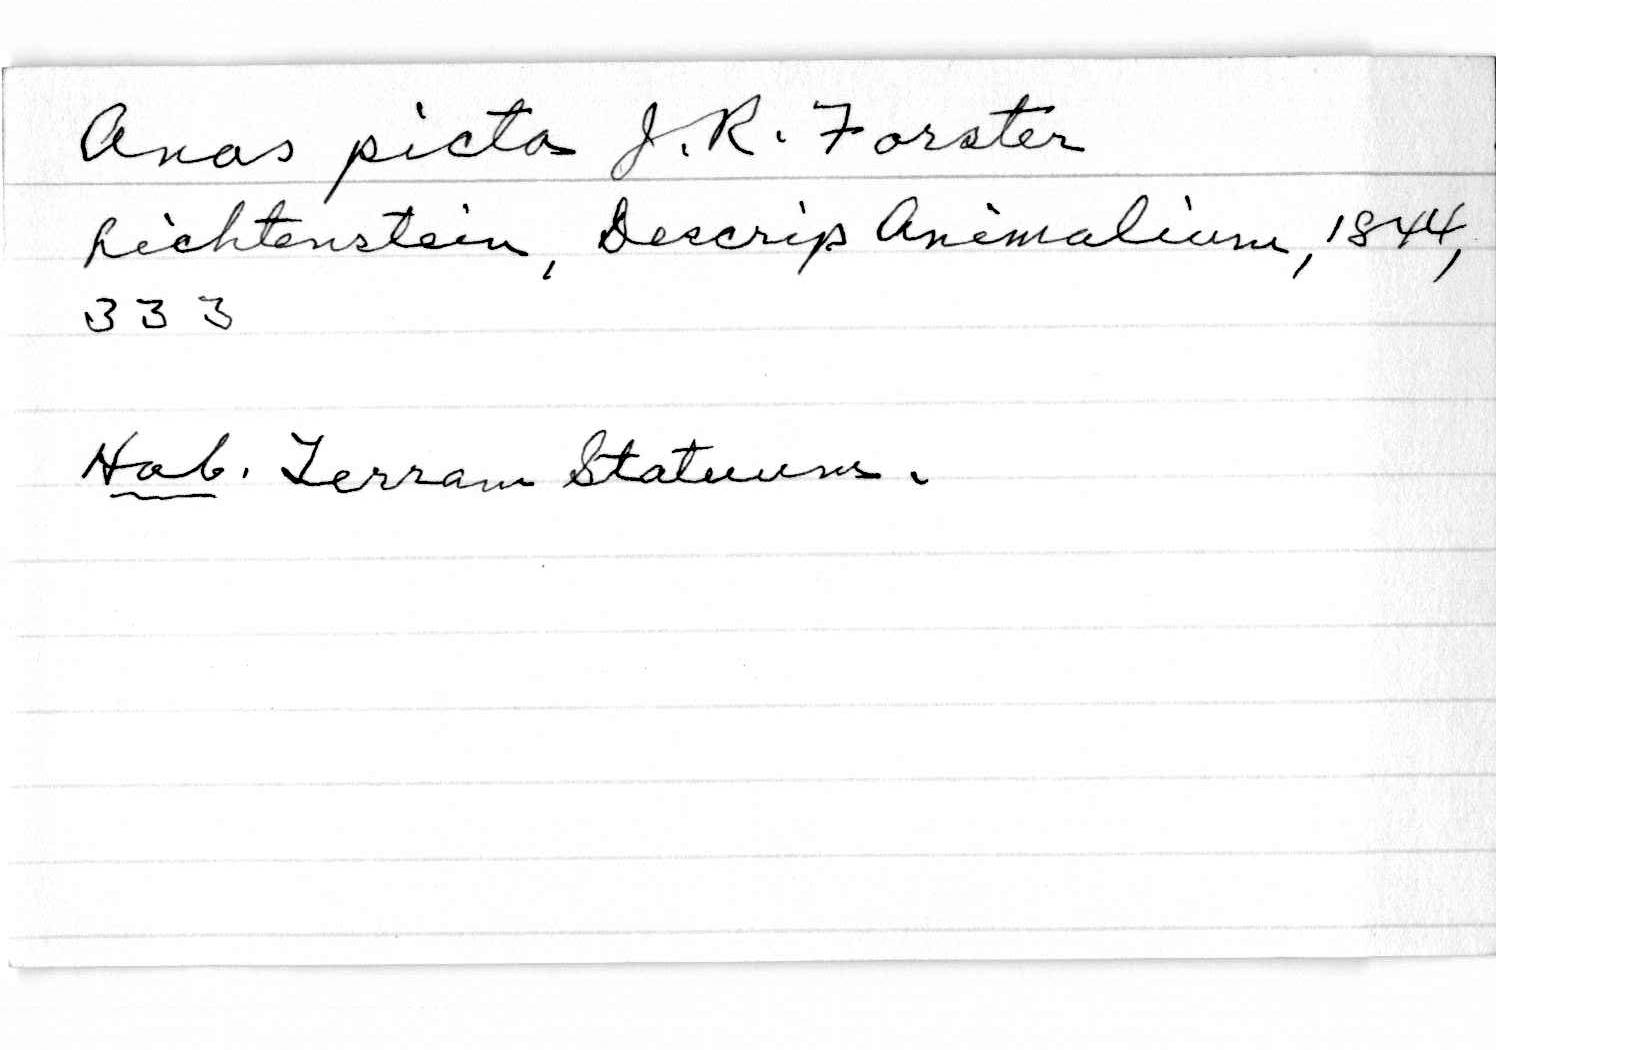 Anas picta J. R. Forster
Lichtenstein, Descrip Animalium, 1844,
333
Hab. Terram Statuum.